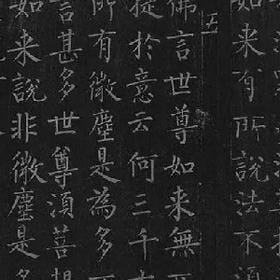 如來有所說法不須
佛言世尊如來無
提於意云何三千大
所有微塵是為多不
言甚多世尊須菩提
如來說非微塵是名